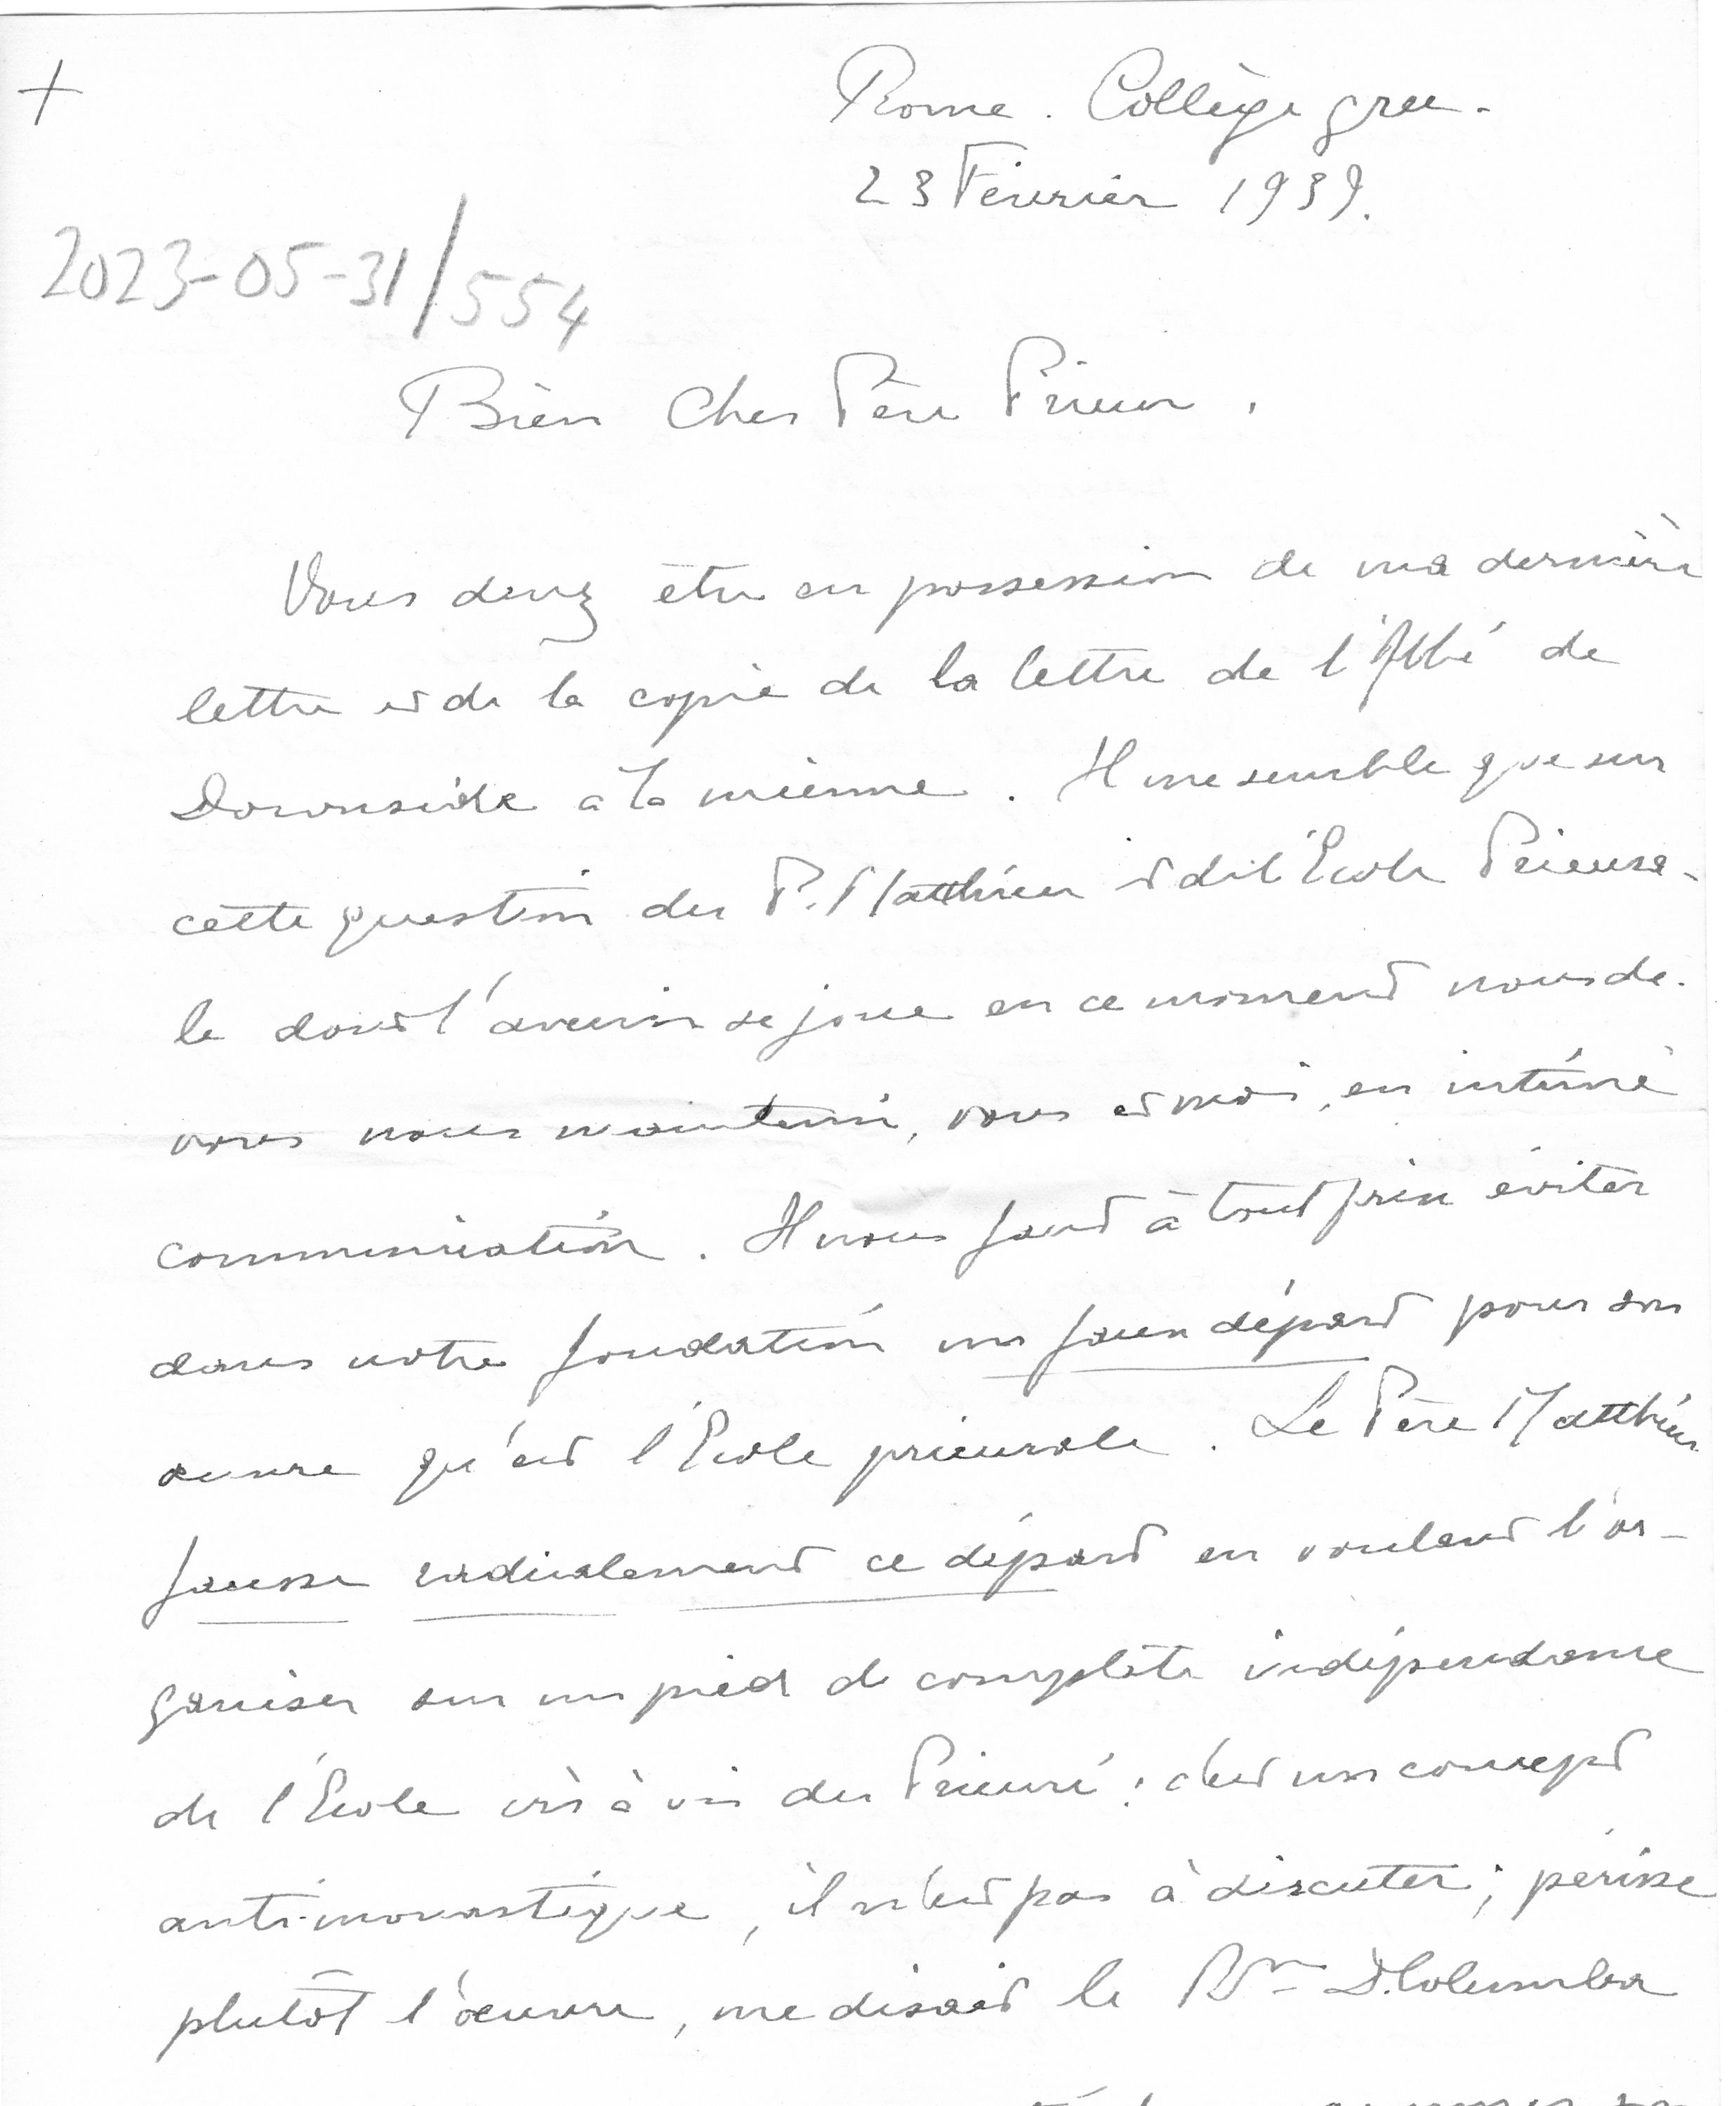 +
Rome. Collège grec.
23 Février 1939.
2023-05-31/554
Bien Cher Père Prieur.
Vous devez être en possession de ma dernière
lettre et de la copie de la lettre de l'Abbé de
Downside à la mienne. Il me semble que sur
cette question du P. Matthieu et de l'Ecole Prieura-
le dont l'avenir se joue en ce moment nous de-
vons nous maintenir, vous et moi, en intime
communication. Il nous faut à tout prix éviter
dans notre fondation un faux départ pour son
œuvre qu'est l'Ecole prieurale. Le Père Matthieu
fausse radicalement ce départ en voulant l'or-
ganiser sur un pied de complète indépendance
de l'Ecole vis à vis du Prieuré: c'est un concept
anti-monastique, il n'est pas à discuter; périsse
plutôt l'œuvre, me disait le D. Columba